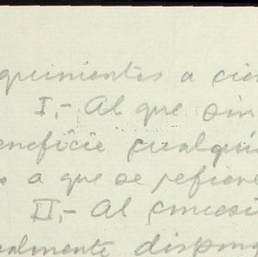 quinientos a cien
I,- Al que sin
beneficie cualqui
s a que se refiere
II,- Al concesi
almente dispong